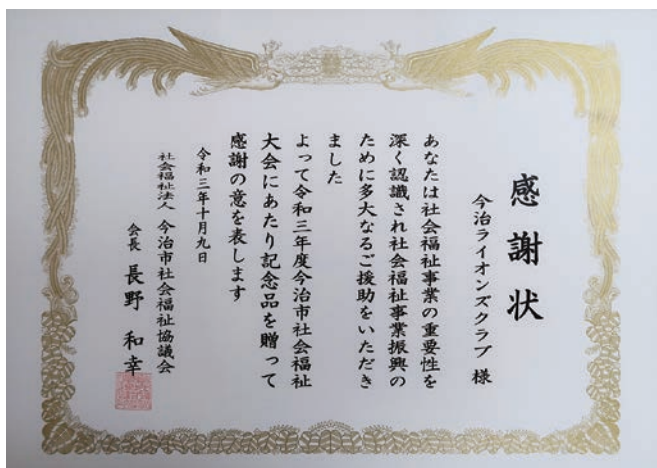 感謝状
今治ライオンズクラブ 様
あなたは社会福祉事業の重要性を
深く認識され社会福祉事業振興の
ために多大なるご援助をいただき
ました
よって令和三年度今治市社会福祉
大会にあたり記念品を贈って
感謝の意を表します
令和三年十月九日
社会福祉法人 今治市社会福祉協議会
会長 長野 和幸